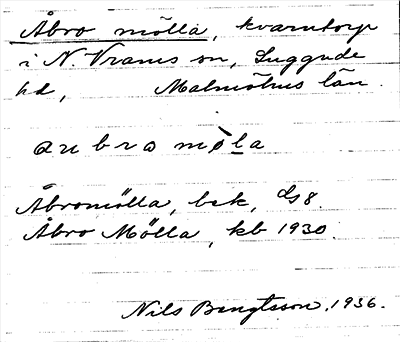 Åbro mölla, kvarntorp
i N. Vrams sn, Luggude
hd, Malmöhus län.
au b r o m ò l a
Åbromölla, bsk, GS8.
Åbro Mölla, kb 1930
Nils Bengtsson, 1936.